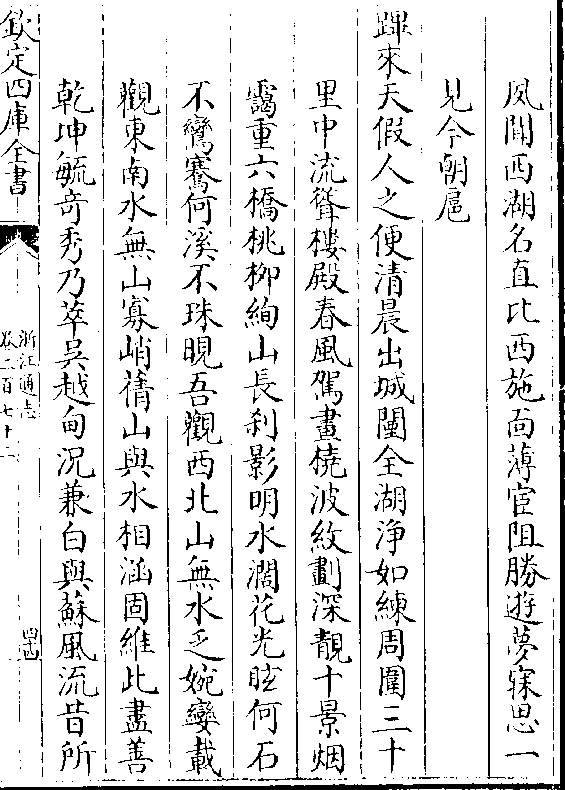 夙聞西湖名直比西施面薄宦阻勝遊夢寐思一
見今朝扈
蹕來天假人之便清晨出城闉全湖浄如練周圍三十
里中流聳樓殿春風駕畫橈波紋劃深靚十景烟
靄重六橋桃柳絢山長刹影明水濶花光眩何石
不鸞騫何溪不珠晛吾觀西北山無水乏婉孌載
觀東南水無山寡峭蒨山與水相涵固維此盡善
乾坤毓奇秀乃萃吳越甸况兼白與蘇風流昔所
欽定四庫全書
浙江通志
卷二百七十二
四